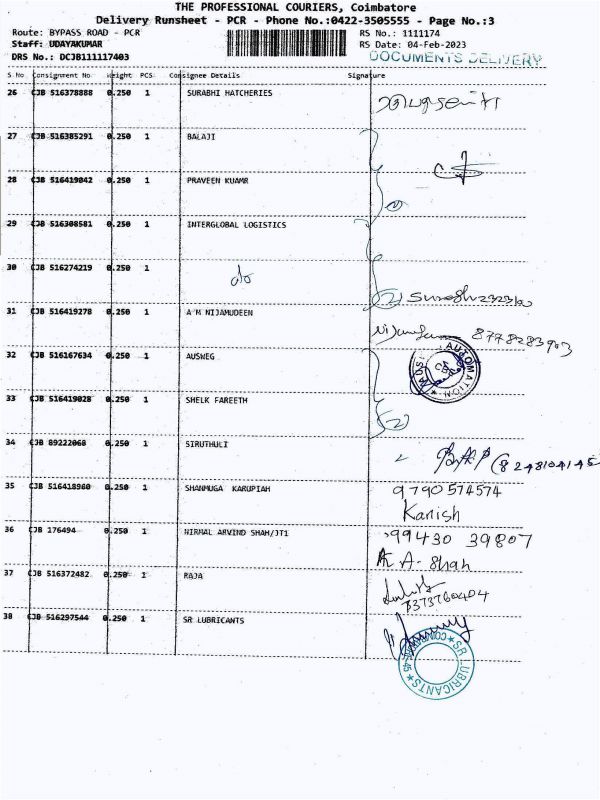 THE PROFESSIONAL COURIERS, Coimbatore
Delivery Runsheet - PCR - Phone No.:0422-3505555 - Page No.:3
Route: BYPASS ROAD - PCR
RS No.: 1111174
Staff: UDAYAKUMAR
RS Date: 04-Feb-2023
DRS No.: DCJB111117403
DOCUMENTS DELIVERY
S No Consignment No Weight PCS Consignee Details Signature
26 CJB 516378888 0.250 1 SURABHI HATCHERIES
27 CJB 516385291 0.250 1 BALAJI
28 CJB 516419042 0.250 1 PRAVEEN KUAMR
29 CJB 516308581 0.250 1 INTERGLOBAL LOGISTICS
30 CJB 516274219 0.250 1 do
31 CJB 516419278 0.250 1 A M NIJAMUDEEN
8778283903
32 CJB 516167634 0.250 1 AUSWEG
AUTOMATION
33 CJB 516419028 0.250 1 SHELK FAREETH
34 CJB 89222068 0.250 1 SIRUTHULI
(8248104145
35 CJB 516418960 0.250 1 SHANMUGA KARUPIAH 9790574574
Kanish
36 CJB 176494 0.250 1 NIRMAL ARVIND SHAH/JT1 99430 39807
A. Shah
37 CJB 516372482 0.250 1 RAJA
7373760404
38 CJB 516297544 0.250 1 SR LUBRICANTS
SR LUBRICANTS